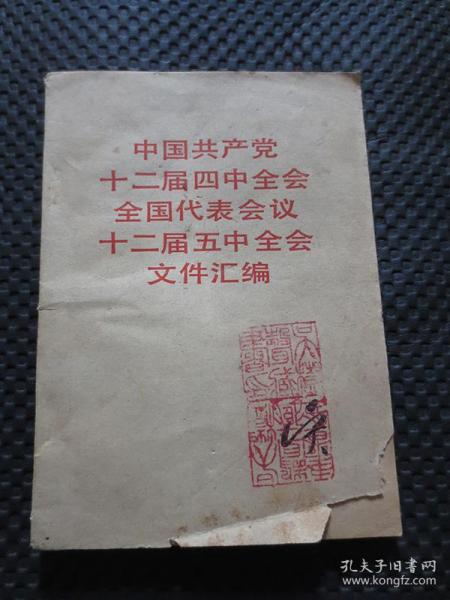 中国共产党
十二届四中全会
全国代表会议
十二届五中全会
文件汇编
孔夫子旧书网
www.kongfz.com